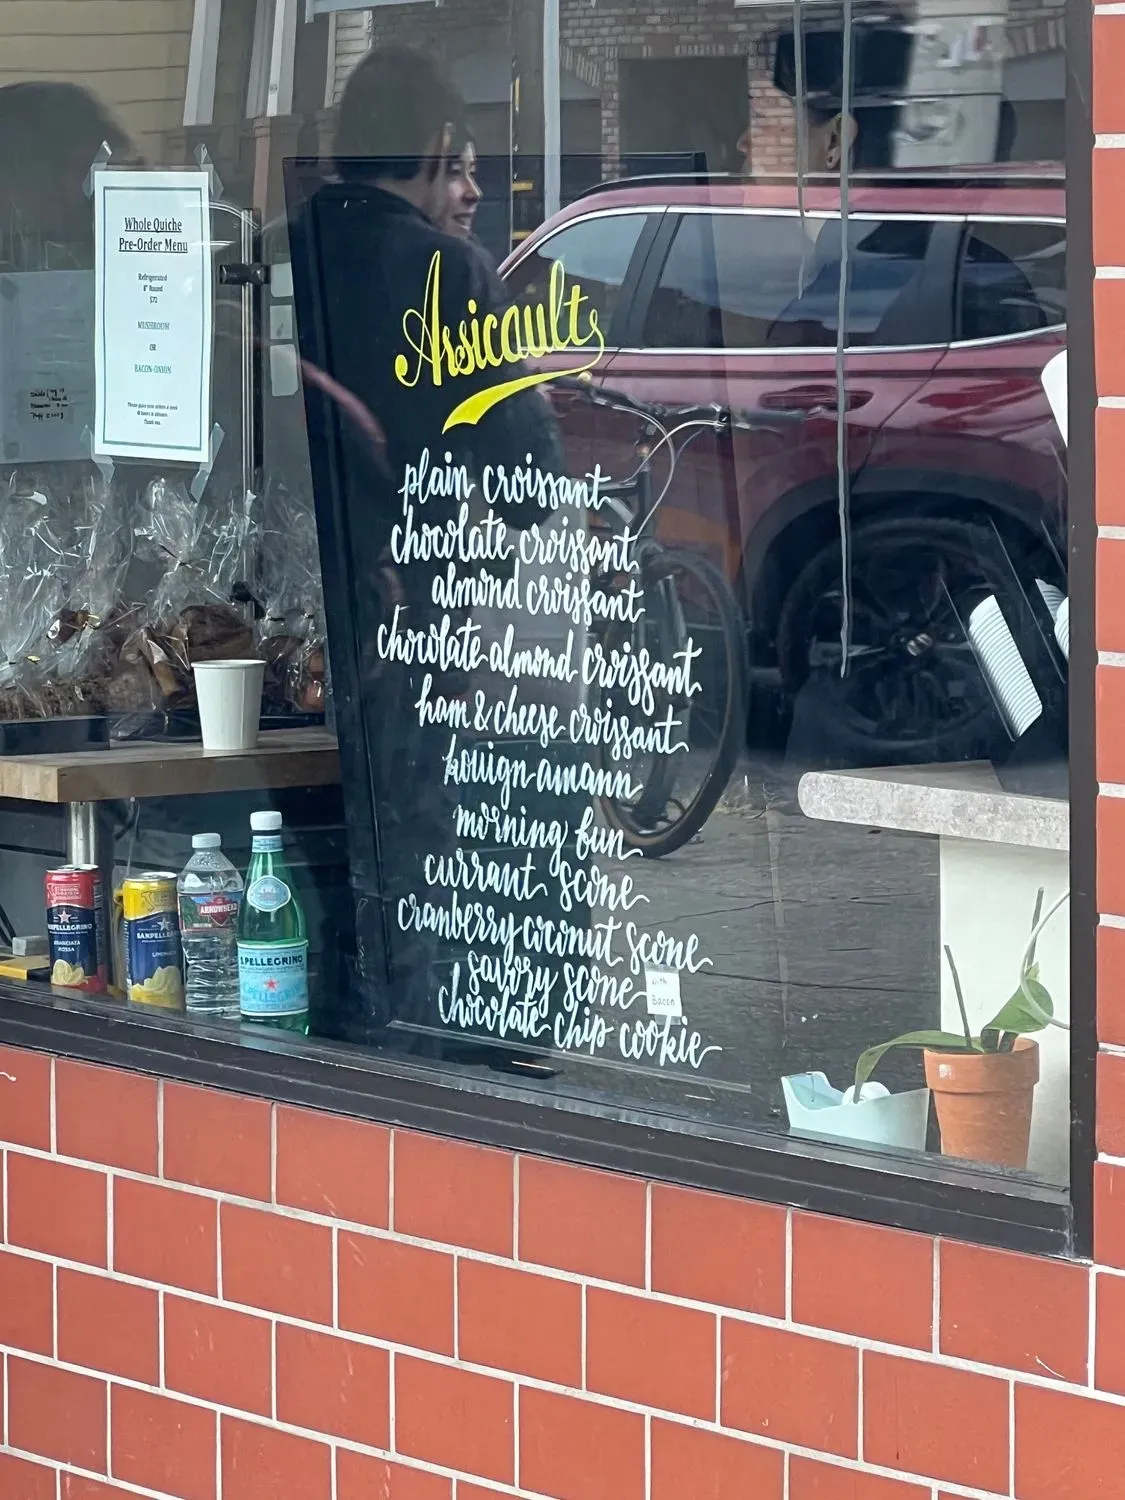 Whole Quiche
Pre-Order Menu
Refrigerated
8" Round
$72
MUSHROOM
OR
BACON-ONION
Thank you.
Arsicault
plain croissant
chocolate croissant
almond croissant
chocolate almond croissant
ham & cheese croissant
kouign-amann
morning bun
currant scone
cranberry coconut scone
savory scone
with
Bacon
chocolate chip cookie
SANPELLEGRINO
ARANCIATA
ROSSA
SANPELLE
LIMONATA
ARROWHEAD
S.PELLEGRINO